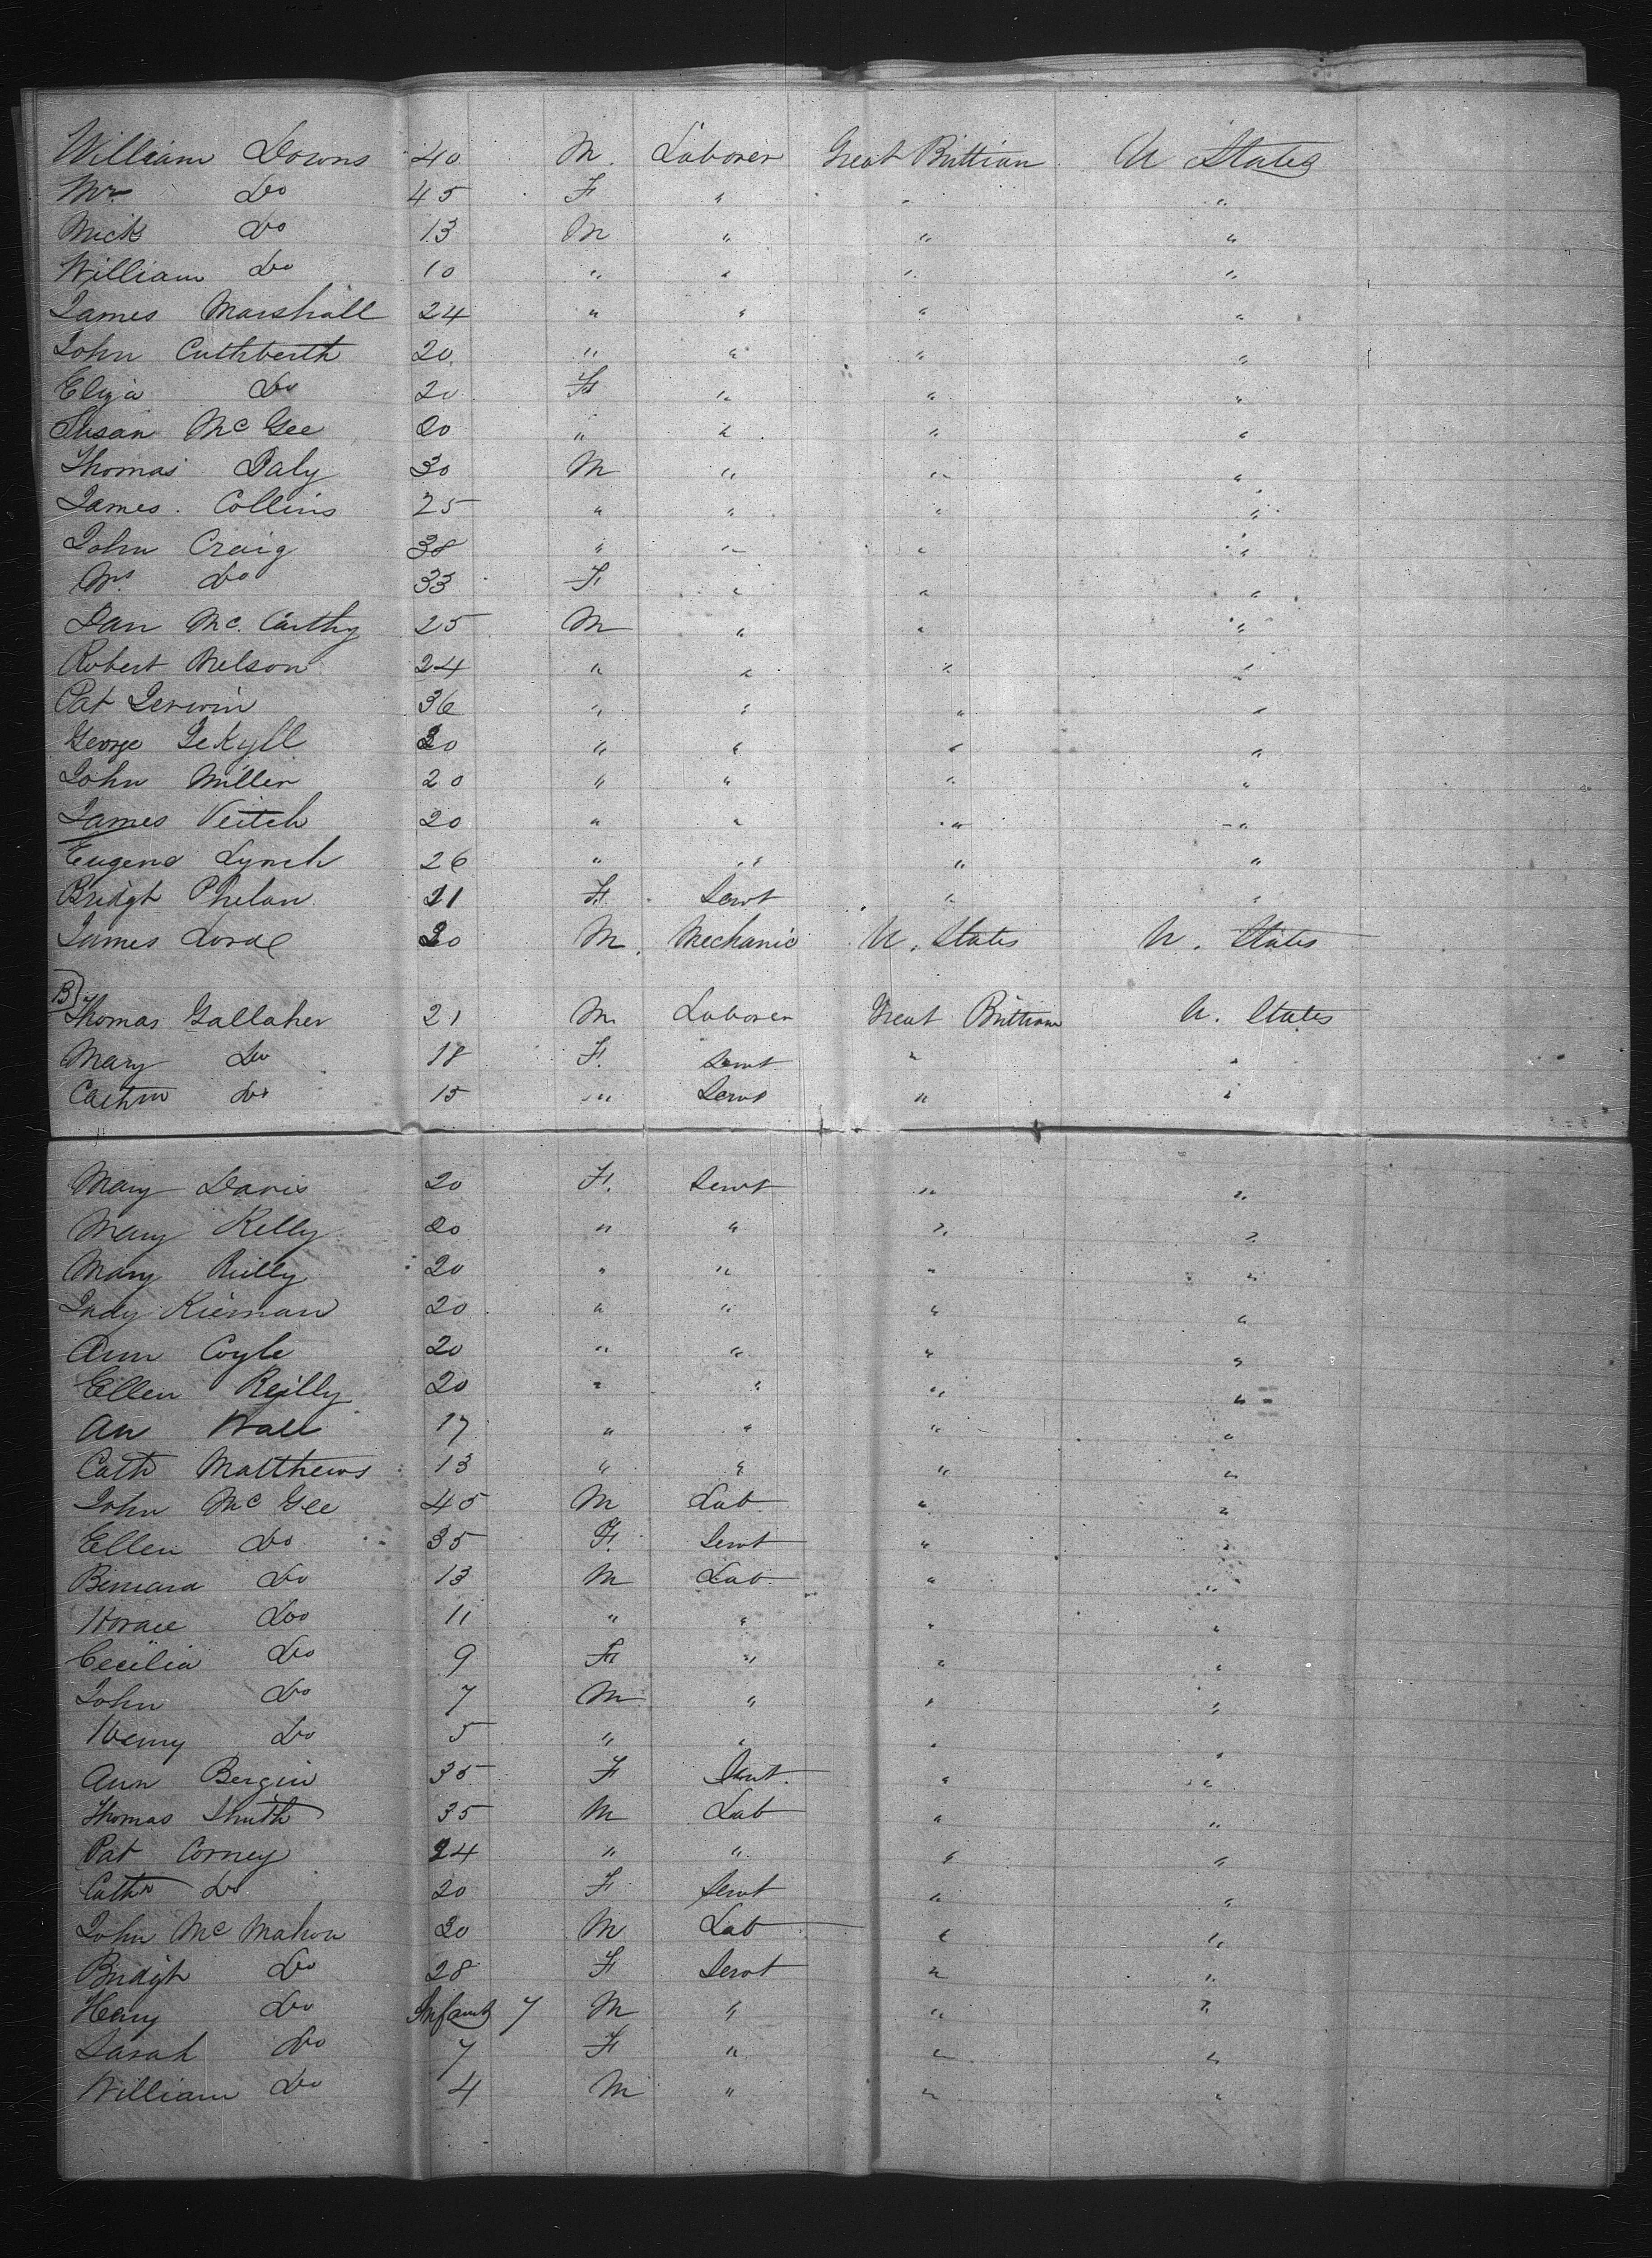 William Downs 40 M. Laborer Great Brittian U States
Mrs Do 45 F " " "
Mick Do 13 M " " "
William Do 10 " " " "
James Marshall 24 " " " "
John Cuthberth 20 " " " "
Eliza Do 20 F " " "
Susan Mc Gee 20 " " " "
Thomas Daly 30 M " " "
James Collins 25 " " " "
John Craig 38 " " " "
Mrs Do 33 F " " "
Dan Mc. Carthy 25 M " " "
Robert Nelson 24 " " " "
Pat Jerwin 36 " " " "
George Jekyll 30 " " " "
John Miller 20 " " " "
James Veitch 20 " " " "
Eugene Lynch 26 " " " "
Bridgt Phelan 21 F. Servt " "
James Lord 30 M. Mechanic U. States U. States
B)
Thomas Gallaher 21 M Laborer Great Brittian U. States
Mary Do 18 F. Servt " "
Cathn Do 15 " Servt " "
Mary Davis 20 F. Servt " "
Mary Kelly 20 " " " "
Mary Rielly 20 " " " "
Judy Kiernan 20 " " " "
Ann Coyle 20 " " " "
Ellen Reilly 20 " " " "
An Wall 17 " " " "
Cath Matthews 13 " " " "
John Mc Gee 45 M Lab " "
Ellen Do 35 F. Servt " "
Bernard Do 13 M Lab " "
Horace Do 11 " " " "
Cecilia Do 9 F " " "
John Do 7 M " " "
Henry Do 5 " " " "
Ann Bergin 35 F Servt. " "
Thomas Smith 35 M Lab " "
Pat Corney 24 " " " "
Cathn Do 20 F Servt " "
John Mc Mahon 30 M Lab " "
Bridgt Do 28 F Servt " "
Henry Do Infant 7 M " " "
Sarah Do 7 F " " "
William Do 4 M " " "